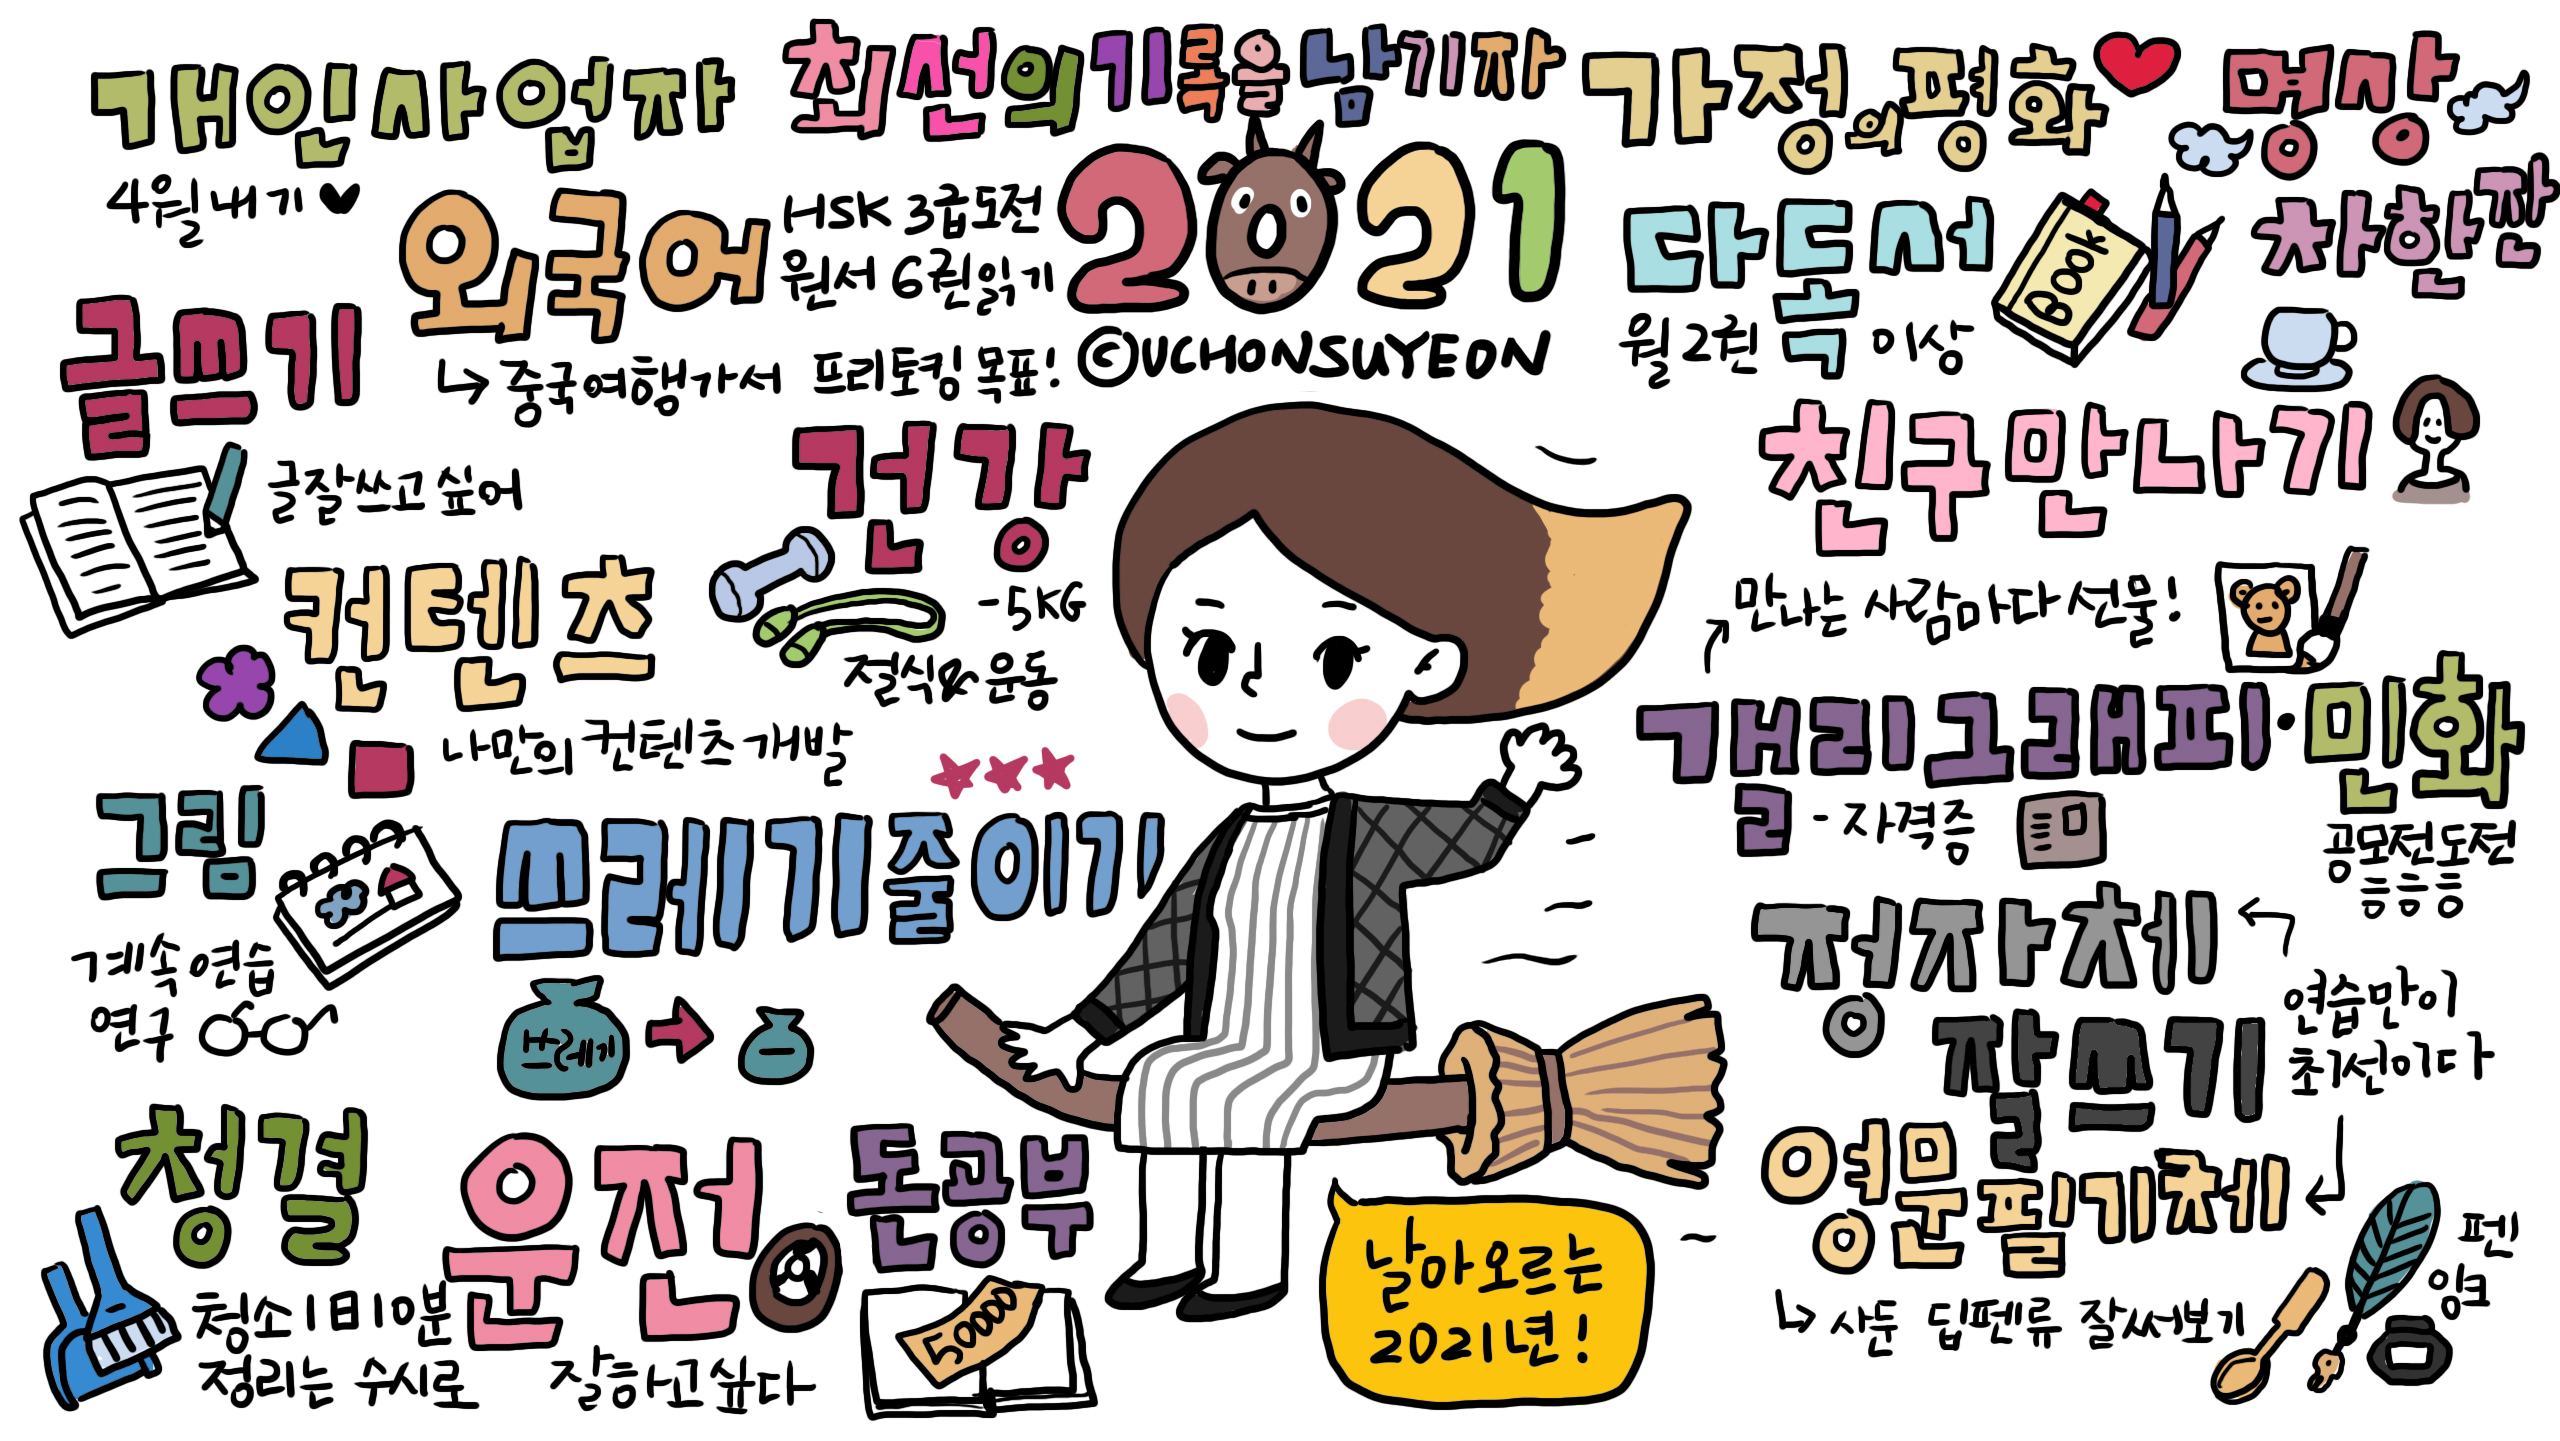 최선의기록을남기자
2021
©UCHONSUYEON
개인사업자
4월내기
외국어
HSK 3급도전
원서 6권읽기
↳ 중국여행가서 프리토킹 목표!
글쓰기
글잘쓰고싶어
건강
-5KG
절식&운동
컨텐츠
나만의 컨텐츠 개발
그림
계속연습
연구
쓰레기줄이기
쓰레기
청결
청소1日10분
정리는 수시로
운전
잘하고싶다
돈공부
50000
가정의평화
명상
다독서
월2권 독 이상
Book
차한잔
친구만나기
만나는 사람마다 선물!
캘리그래피·민화
-자격증
공모전도전
등등등
정자체
잘쓰기
연습만이
최선이다
영문필기체
↳ 사둔 딥펜류 잘써보기
펜
잉크
날아오르는
2021년!